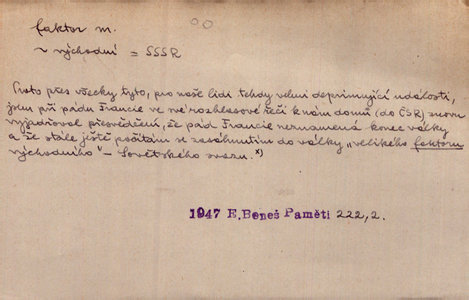 faktor m.
~ východní = SSSR
Proto přes všecky tyto, pro naše lidi tehdy velmi deprimující události,
jsem při pádu Francie ve své rozhlasové řeči k nám domů (do ČSR) znovu
vyjadřoval přesvědčení, že pád Francie neznamená konec války
a že stále ještě počítám se zasáhnutím do války „velikého faktoru
východního“ – Sovětského svazu.x)
1947 E.Beneš Paměti 222,2.